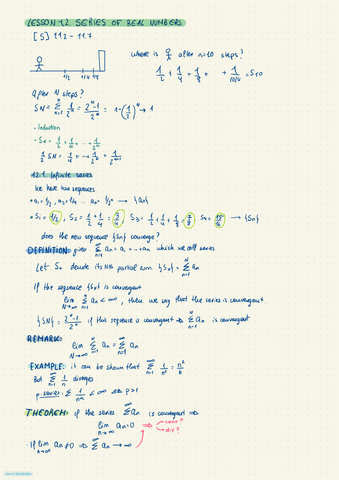 LESSON 12 SERIES OF REAL NUMBERS
[S] 11.2 - 11.7
where is after n=10 steps?
1/2 1/4 1/8
1/2 + 1/4 + 1/8 + + 1/1024 = S10
After N steps?
SN = Σ 1/2^n = (2^N - 1)/2^N = 1 - (1/2)^N → 1
• Induction
• SN = 1/2 + 1/4 + ... + 1/2^N
1/2 SN = 1/4 + ... + 1/2^N + 1/2^(N+1)
12.1. Infinite series
We have two sequences
• a1 = 1/2, a2 = 1/4 ... an = 1/2^n → {an}
• S1 = 1/2, S2 = 1/2 + 1/4 = 3/4 S3 = 1/2 + 1/4 + 1/8 = 7/8 S4 = 15/16 → {Sn}
does the new sequence {Sn} converge?
DEFINITION: given Σ an = a1 + ... + an which we call series
Let Sn denote its Nth partial sum {SN} = Σ an
If the sequence {SN} is convergent
lim N→∞ Σ an < ∞, then we say that the series is convergent
{SN} = (2^N - 1)/2^N if this sequence is convergent ⇒ Σ an is convergent
REMARK: lim N→∞ Σ an = Σ an
EXAMPLE: it can be shown that Σ 1/n² = π²/6
But Σ 1/n diverges
p-series: Σ 1/n^p < ∞ ⇔ p > 1
THEOREM: if the series Σ an is convergent ⇒
lim n→∞ an = 0 ⇒ conv? div?
• If lim n→∞ an ≠ 0 ⇒ Σ an → ∞